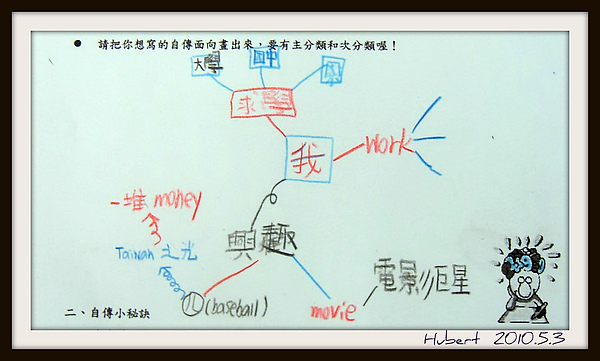 ● 請把你想寫的自傳面向畫出來，要有主分類和次分類喔！
大學
國中
求學
我
work
一堆 money
Taiwan 之光
興趣
(baseball)
movie
電影巨星
二、自傳小秘訣
Hubert 2010.5.3